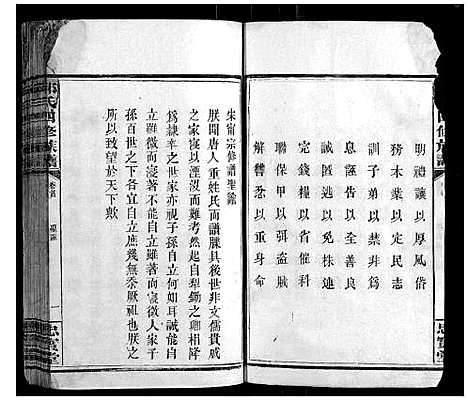 明禮讓以厚風俗
務本業以定民志
訓子弟以禁非為
息誣告以全善良
誡匿逃以免株連
完錢糧以省催科
聯保甲以弭盜賊
解讐忿以重身命
思寶堂
朱甯宗修譜聖諭
朕聞唐人重姓氏而譜牒具後世非文儒貴戚
之家寖以湮沒而難考然起自犁鋤之卿相降
為隸辛之世家亦視子孫自立何如耳誠能自
立雖微而寖著不能自立雖著而寖微人家子
孫百世之下當各宜自立庶幾無忝厥祖也朕之
所以致望於天下歟
氏四修族譜
卷首
一
思寶堂